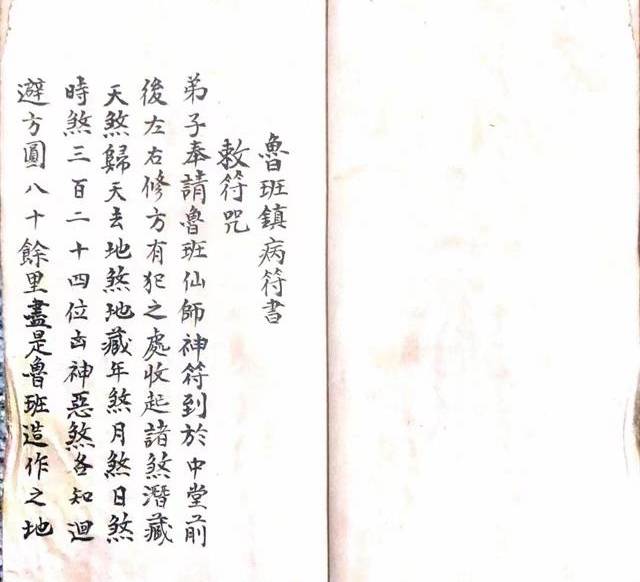 魯班鎮病符書
敕符咒
弟子奉請魯班仙師神符到於中堂前
後左右修方有犯之處收起諸煞潛藏
天煞歸天去地煞地藏年煞月煞日煞
時煞三百二十四位凶神惡煞各知迴
避方圓八十餘里盡是魯班造作之地